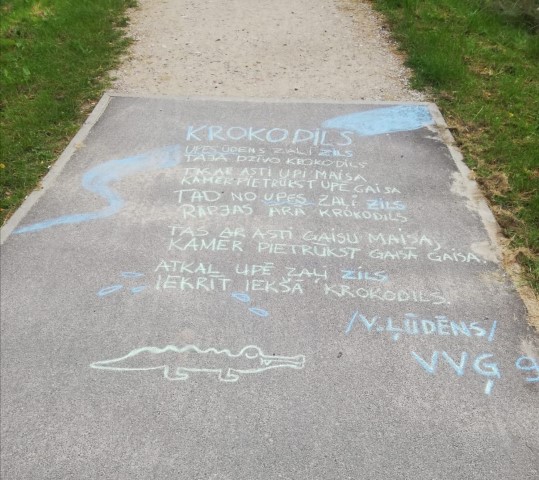 KROKODILS
UPES ŪDENS ZAĻI ZILS
TAJĀ DZĪVO KROKODILS
TAS AR ASTI UPI MAISA
KAMĒR PIETRŪKST UPĒ GAISA
TAD NO UPES ZAĻI ZILS
RĀPJAS ĀRĀ KROKODILS
TAS AR ASTI GAISU MAISA,
KAMĒR PIETRŪKST GAISĀ GAISA.
ATKAL UPĒ ZAĻI ZILS
IEKRĪT IEKŠĀ KROKODILS.
/V. ĻŪDĒNS/
VVĢ 9